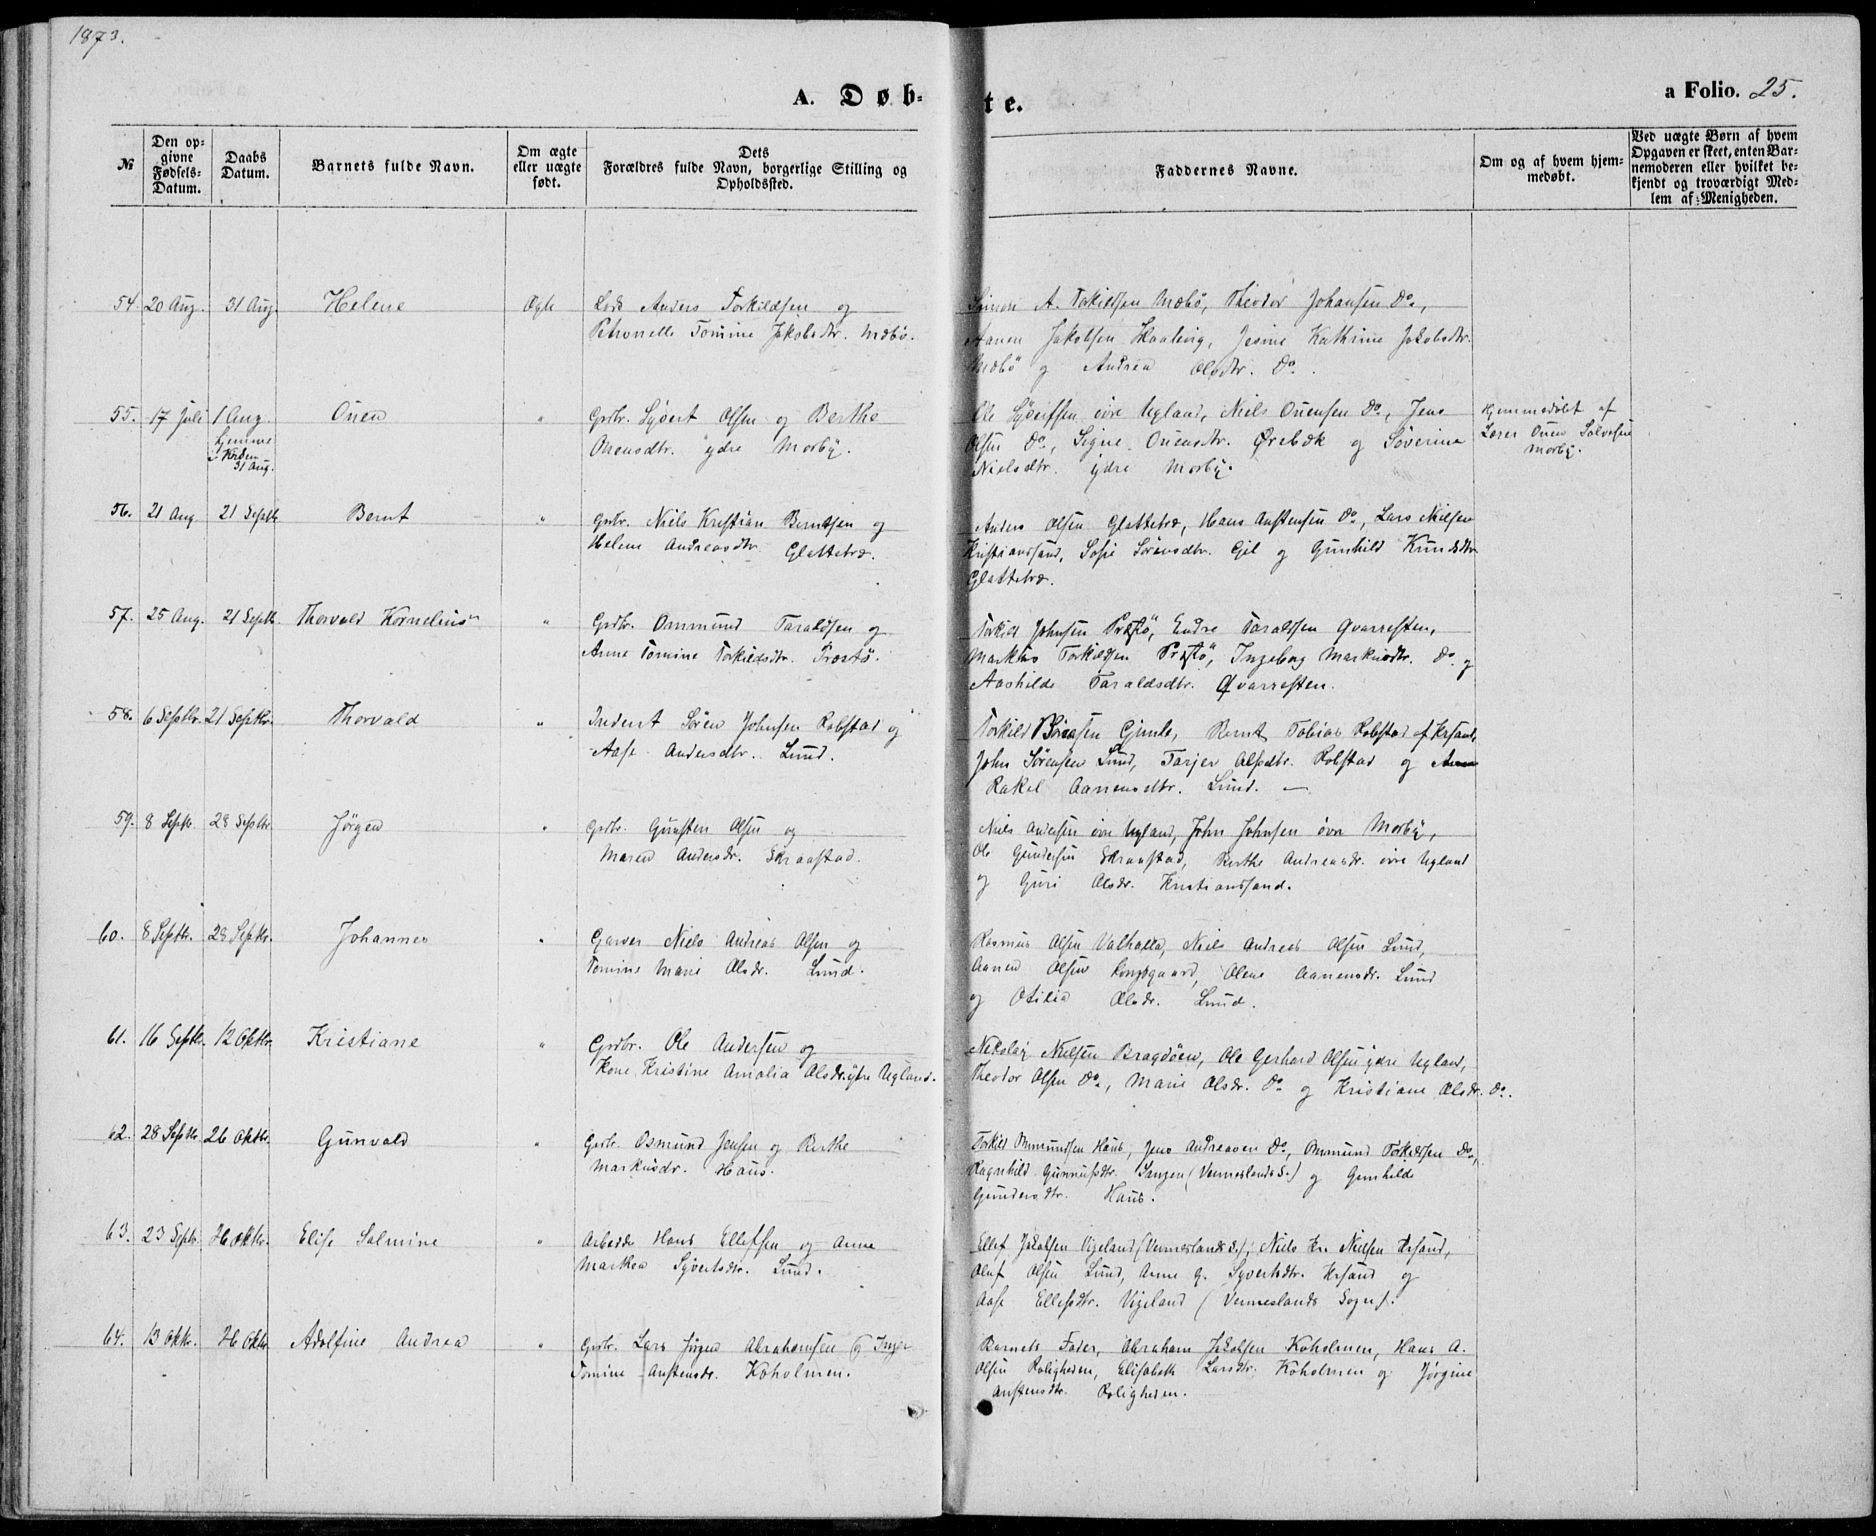 1873.
A. Døbte.
a Folio. 25.
№
Den opgivne Fødsels-Datum.
Daabs Datum.
Barnets fulde Navn.
Om ægte eller uægte født.
Dets Forældres fulde Navn, borgerlige Stilling og Opholdssted.
Faddernes Navne.
Om og af hvem hjemmedøbt.
Ved uægte Børn af hvem Opgaven er skeet, enten Barnemoderen eller hvilket bekjendt og troværdigt Medlem af Menigheden.
54. 20 Aug. 31 Aug. Helene Ægte Anders Torkildsen og
Petronelle Tomine Jakobsdtr. Mæbø.
Simon A. Torkildsen Mæbø, Theodor Johansen Do.,
Aanen Jakobsen Haalevig, Jesine Kathrine Jakobsdtr.
Mæbø og Andrea Olsdtr. Do.
55. 17 Juli 1 Aug. Ouen " Grdbr. Syvert Olsen og Berthe
hjemme
i Kirken
31 Aug.
Ouensdtr. ydre Morby.
Ole Syvertsen øvre Ugland, Niels Ouensen Do., Jens
Olsen Do., Signe Ouensdtr. Ørebæk og Severine
Nielsdtr. ydre Morby.
Hjemmedøbt af
Lærer Ouen Salvesen
Morby.
56. 21 Aug. 21 Septbr. Bernt " Grdbr. Niels Kristian Berntsen og
Helene Andreasdtr. Glattetræ.
Anders Olsen Glattetræ, Hans Anstensen Do., Lars Nielsen
Kristianssand, Sofie Sørensdtr. Gil og Gunhild Knudsdtr.
Glattetræ.
57. 25 Aug. 21 Septbr. Thorvald Kornelius " Grdbr. Ommund Taraldsen og
Anne Tomine Torkildsdtr. Prestø.
Torkild Johnsen Præstø, Endre Taraldsen Qvarresten,
Markus Torkildsen Præstø, Ingeborg Markusdtr. Do. og
Aashilde Taraldsdtr. Qvarresten.
58. 6 Septbr. 21 Septbr. Thorvald " Inderst Søren Johnsen Robstad og
Aase Andersdtr. Lund.
Torkild Gimle, Bernt Tobias Robstad af Krsand,
John Sørensen Lund, Tarjer Olsdtr. Robstad og
Rakel Aanensdtr. Lund. —
59. 8 Septbr. 28 Septbr. Jørgen " Grdbr. Gunsten Olsen og
Maren Andersdr. Skraastad.
Niels Andersen øvre Ugland, John Johnsen øvre Morby,
Ole Gundersen Skraastad, Berthe Andreasdr. øvre Ugland
og Guri Olsdr. Kristianssand.
60. 8 Septbr. 28 Septbr. Johannes " Garver Niels Andreas Olsen og
Tomine Marie Olsdr. Lund.
Rasmus Olsen Valhalla, Niels Andreas Olsen Lund,
Aanen Olsen Kongsgaard, Olene Aanensdr. Lund
og Otilia Olsdr. Lund.
61. 16 Septbr. 12 Oktbr. Kristiane " Grdbr. Ole Andersen og
Kone Kristine Amalia Olsdr. ytre Ugland.
Nikolay Nielsen Bragdøen, Ole Gerhard Olsen ydre Ugland,
Theodor Olsen Do., Marie Olsdr. Do. og Kristiane Olsdr. Do.
62. 28 Septbr. 26 Oktbr. Gunvald " Grdbr. Osmund Jensen og Berthe
Markusdr. Haus.
Torkild Ommundsen Haus, Jens Andreasen Do., Ommund Torkildsen Do.,
Ragnhild Gunnufsdtr. Langen (Venneslands S.) og Gunhilde
Gundersdtr. Haus.
63. 23 Septbr. 26 Oktbr. Elise Salmine " Arbeider Hans Ellefsen og Anne
Markea Syvertsdtr. Lund.
Ellef Jakobsen Vigeland (Venneslands S.), Niels Kr. Nielsen Krsand,
Oluf Olsen Lund, Anne G. Syvertsdtr. Krsand og
Aase Ellefsdtr. Vigeland (Venneslands Sogn).
64. 13 Oktbr. 26 Oktbr. Adolfine Andrea " Grdbr. Lars Jørgen Abrahamsen og Inger
Tomine Anstensdr. Koholmen.
Barnets Fader, Abraham Jakobsen Koholmen, Hans A.
Olsen Roligheden, Elisabeth Larsdtr. Koholmen og Jørgine
Anstensdtr. Roligheden.